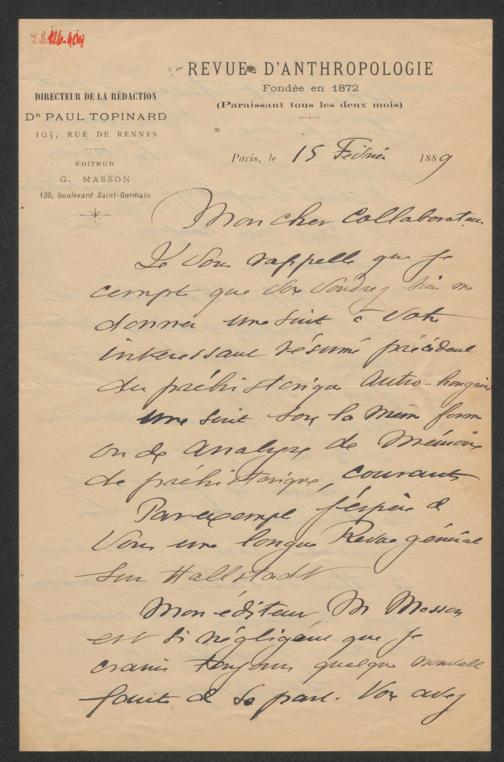 I.N. 126.409
REVUE D'ANTHROPOLOGIE
Fondée en 1872
(Paraissant tous les deux mois)
DIRECTEUR DE LA RÉDACTION
Dr PAUL TOPINARD
105, RUE DE RENNES
ÉDITEUR
G. MASSON
120, boulevard Saint-Germain
Paris, le 15 Février 1889
Mon cher collaborateur
Je vous rappelle que je
compte que vous voudrez bien me
donner une suite à votre
intéressant résumé précédent
du préhistorique Autro-hongrois
une suite sous la même forme
ou de analyse de Mémoires
de préhistorique, courants
Par exemple j'espère de
vous une longue Revue générale
sur Hallstadt
Mon éditeur M Masson
est si négligent que je
crains toujours quelque nouvelle
faute de sa part. Vous avez